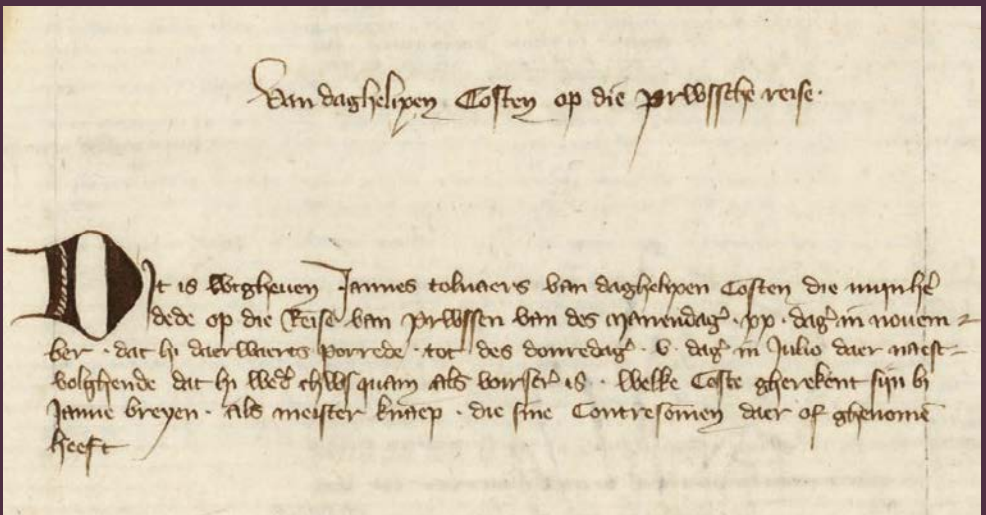 Van daghelixen Costen op die prwssche reise.
Dit is wtgheven Jannes tolnaers van daghelixen Costen die mijnhe͛
dede op die Reise van prwssen van des manendag͛ · xx · dag͛ in novem
ber · dat hi daerwaerts porrede · tot des donredag͛ · v · dag͛ in Julio daer naest
volghende dat hi wed͛ thws quam als voirscr͛ is · welke Coste gherekent sijn bi
Janne breyen · als meister knaep · die sine Contresomen daer of ghenomē
heeft